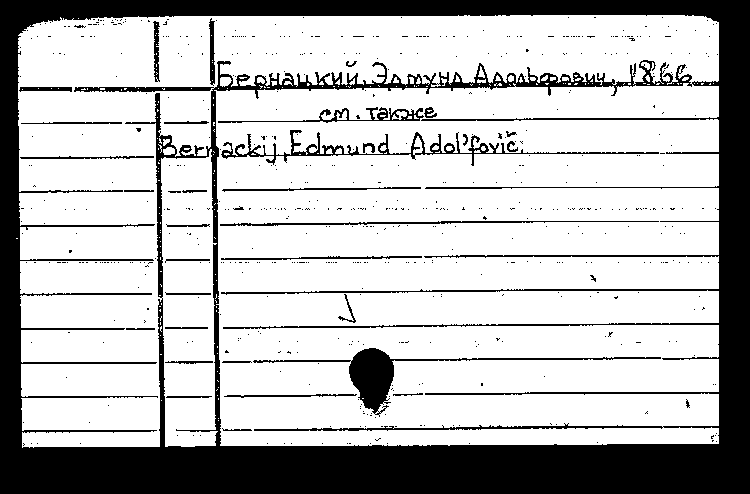 Бернацкий, Эдмунд Адольфович, 1866
см. также
Bernackij, Edmund Adol'fovič.